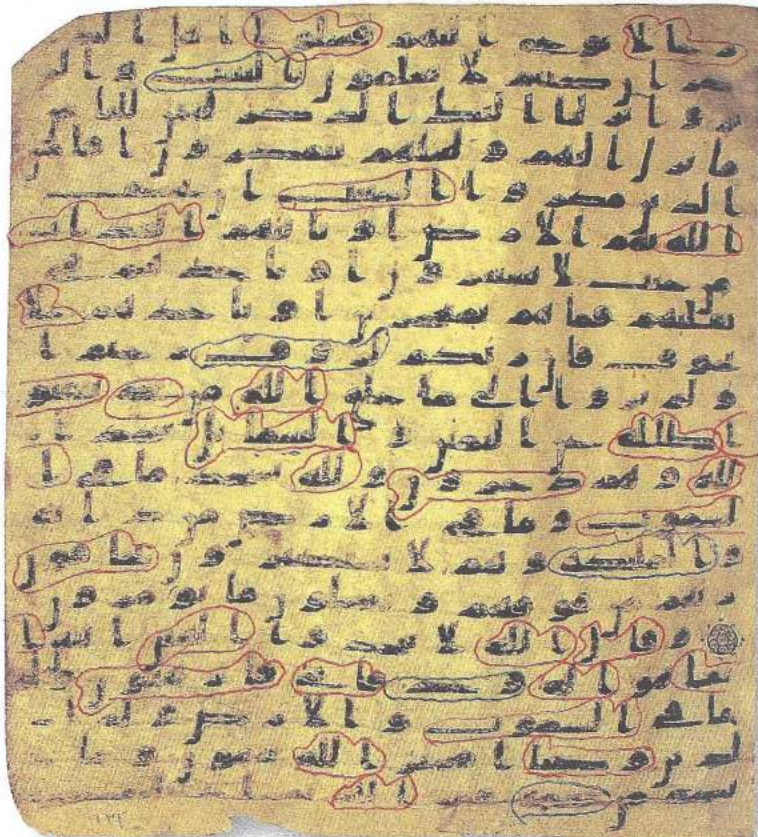 رجالا نوحى اليهم فسلوا اهل الذ
كر ان كنتم لا تعلمون بالبينت والز
بر وانزلنا اليك الذكر لتبين للناس
ما نزل اليهم ولعلهم يتفكرون افامن
الذين مكروا السيات ان يخسف
الله بهم الارض او ياتيهم العذاب
من حيث لا يشعرون او ياخذهم في
تقلبهم فما هم بمعجزين او ياخذهم على
تخوف فان ربكم لروف رحيم ا
ولم يروا الى ما خلق الله من شي يتفيو
ا ظلله عن اليمين والشمايل سجدا
لله وهم دخرون ولله يسجد ما في ا
لسموت وما في الارض من دابة
والمليكة وهم لا يستكبرون يخافون
ربهم من فوقهم ويفعلون ما يومرون
وقال الله لا تتخذوا الهين اثنين ا
نما هو اله وحد فايي فارهبون وله
ما في السموت والارض وله ا
لدين وصبا افغير الله تتقون وما
بكم من نعمة فمن الله